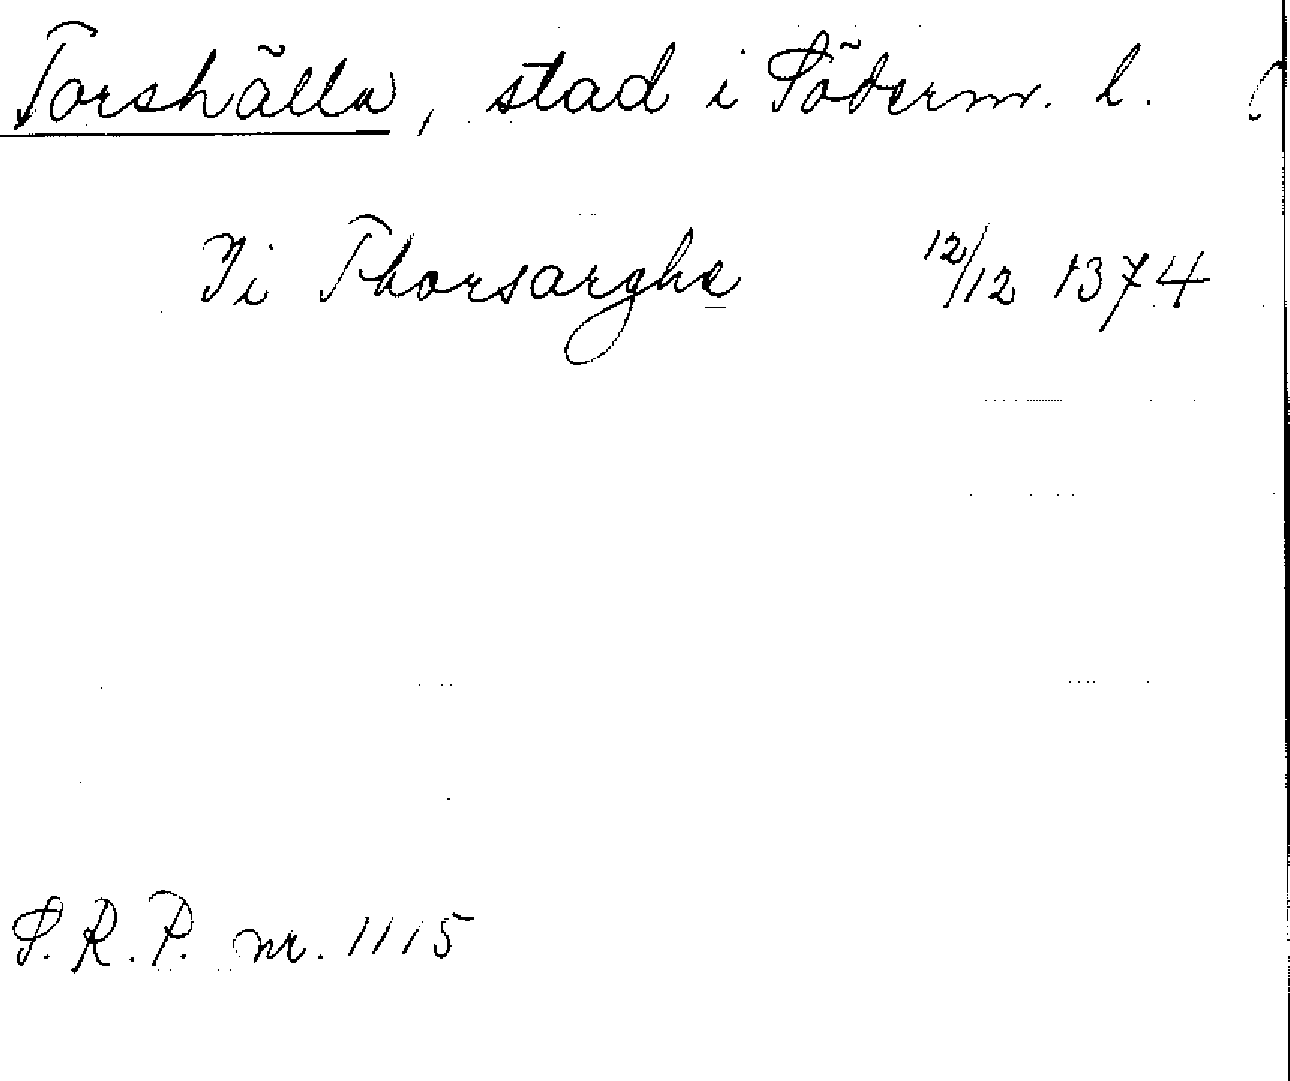 Torshälla, stad i Söderm. l.
Ji Thorsarghe 12/12 1374
S.R.P. nr. 1115